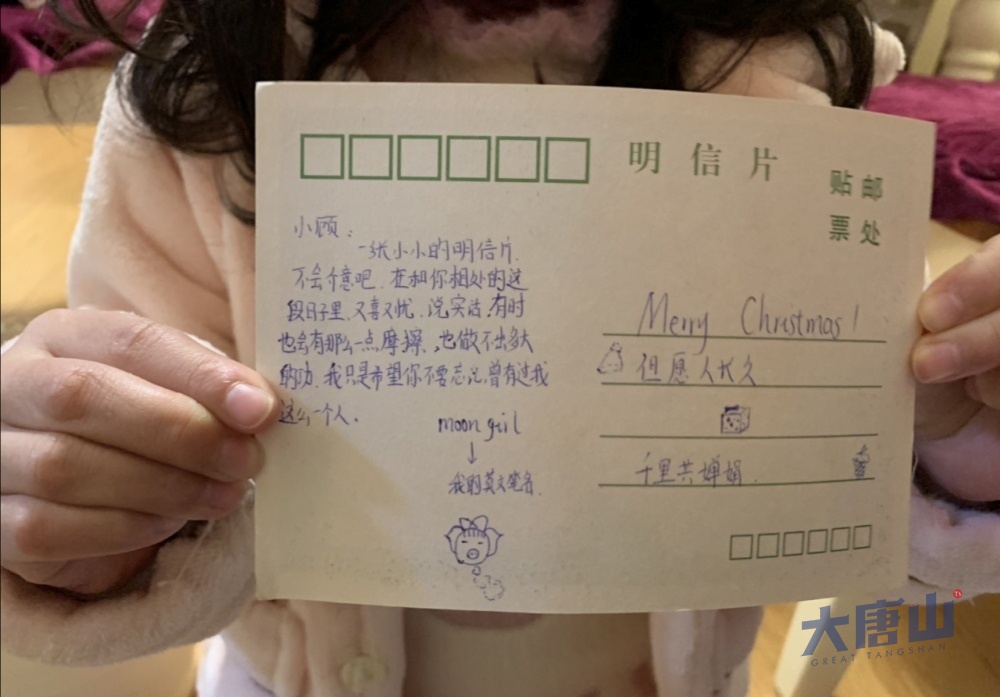 明信片
贴邮
票处
小顾：
一张小小的明信片.
不会介意吧.在和你相处的这
段日子里.又喜又忧.说实话.有时
也会有那么一点摩擦.,也做不出多大
的功.我只是希望你不要忘记曾有过我
这么一个人.
moon girl
↓
我的英文笔名.
Merry Christmas!
但愿人长久
千里共婵娟.
大唐山
GREAT TANGSHAN